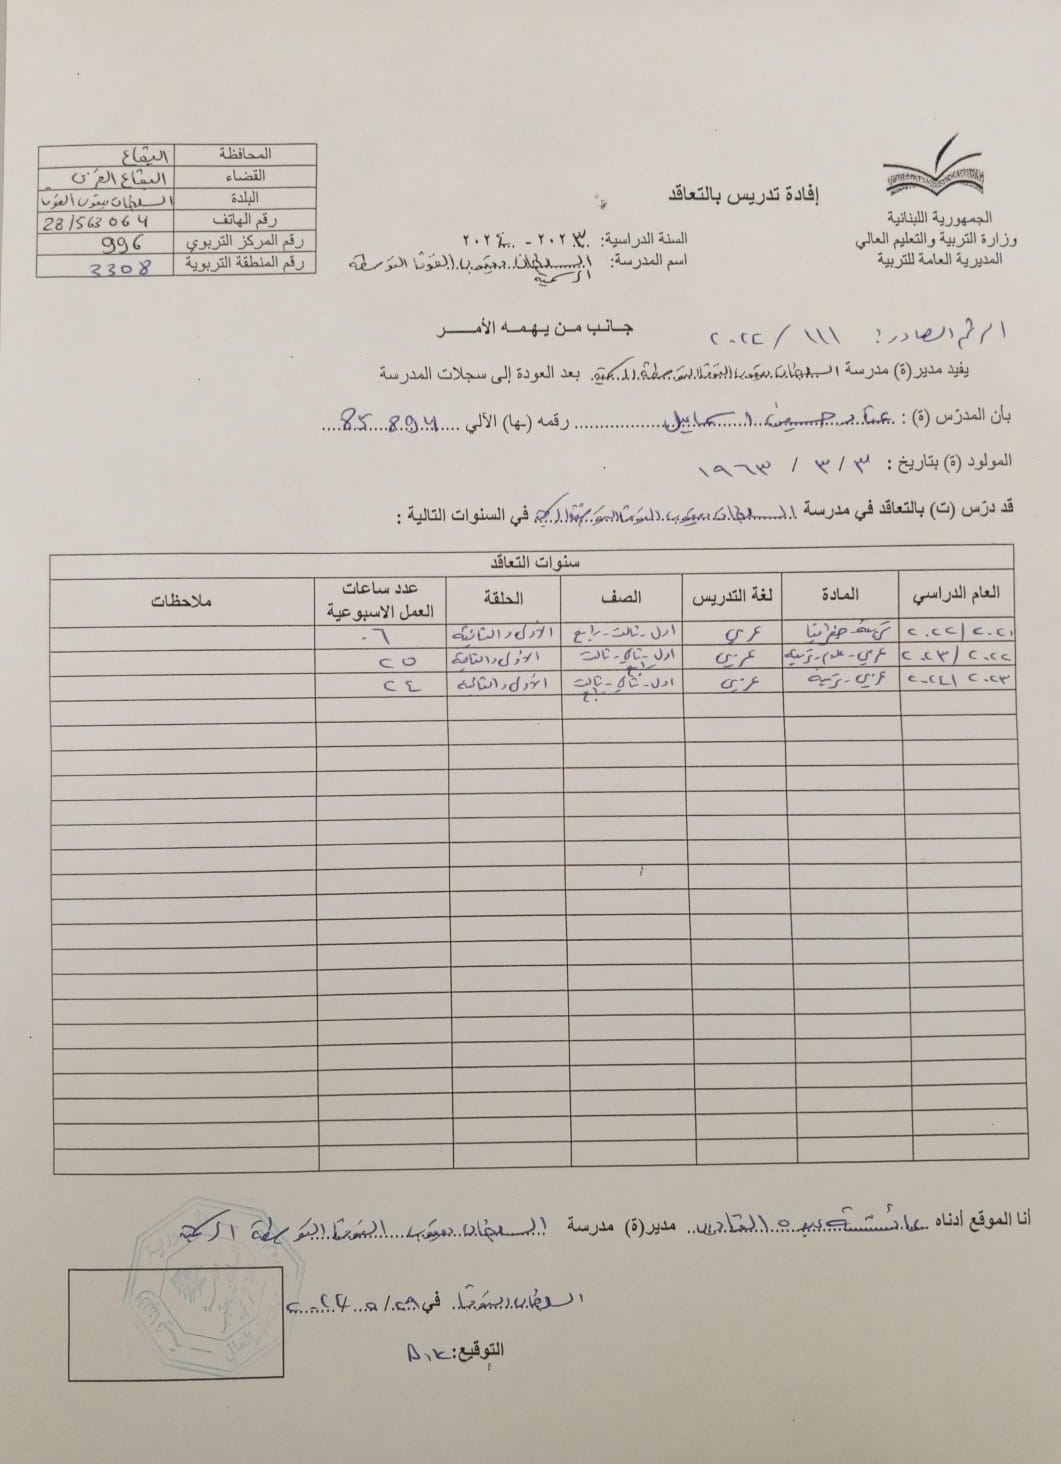 الجمهورية اللبنانية
وزارة التربية والتعليم العالي
المديرية العامة للتربية
إفادة تدريس بالتعاقد
السنة الدراسية: ٢٠٢٣ - ٢٠٢٤
اسم المدرسة: السلطان يعقوب الفوقا المتوسطة
الرسمية
المحافظة البقاع
القضاء البقاع الغربي
البلدة السلطان يعقوب الفوقا
رقم الهاتف 28/563064
رقم المركز التربوي 996
رقم المنطقة التربوية 3308
الرقم الصادر: ١١١ / ٢٠٢٤
جانب من يهمه الأمر
يفيد مدير(ة) مدرسة السلطان يعقوب الفوقا المتوسطة الرسمية بعد العودة إلى سجلات المدرسة
بأن المدرّس (ة) : حسين اسماعيل رقمه (ـها) الآلي
المولود (ة) بتاريخ : ٣ / ٣ / ١٩٦٣
قد درّس (ت) بالتعاقد في مدرسة السلطان يعقوب الفوقا المتوسطة الرسمية في السنوات التالية :
سنوات التعاقد
العام الدراسي المادة لغة التدريس الصف الحلقة عدد ساعات العمل الاسبوعية ملاحظات
٢٠٢١ / ٢٠٢٢ تربية - جغرافيا عربي اول - ثالث - رابع الأولى والثانية ٠٦
٢٠٢٢ / ٢٠٢٣ عربي - علوم - تربية عربي اول - ثاني - ثالث رابع الأولى والثانية ٢٥
٢٠٢٣ / ٢٠٢٤ عربي - تربية عربي اول - ثاني - ثالث رابع الأولى والثانية ٢٤
أنا الموقع أدناه عائشة عبد القادر مدير(ة) مدرسة السلطان يعقوب الفوقا المتوسطة الرسمية
السلطان الفوقا في
التوقيع: